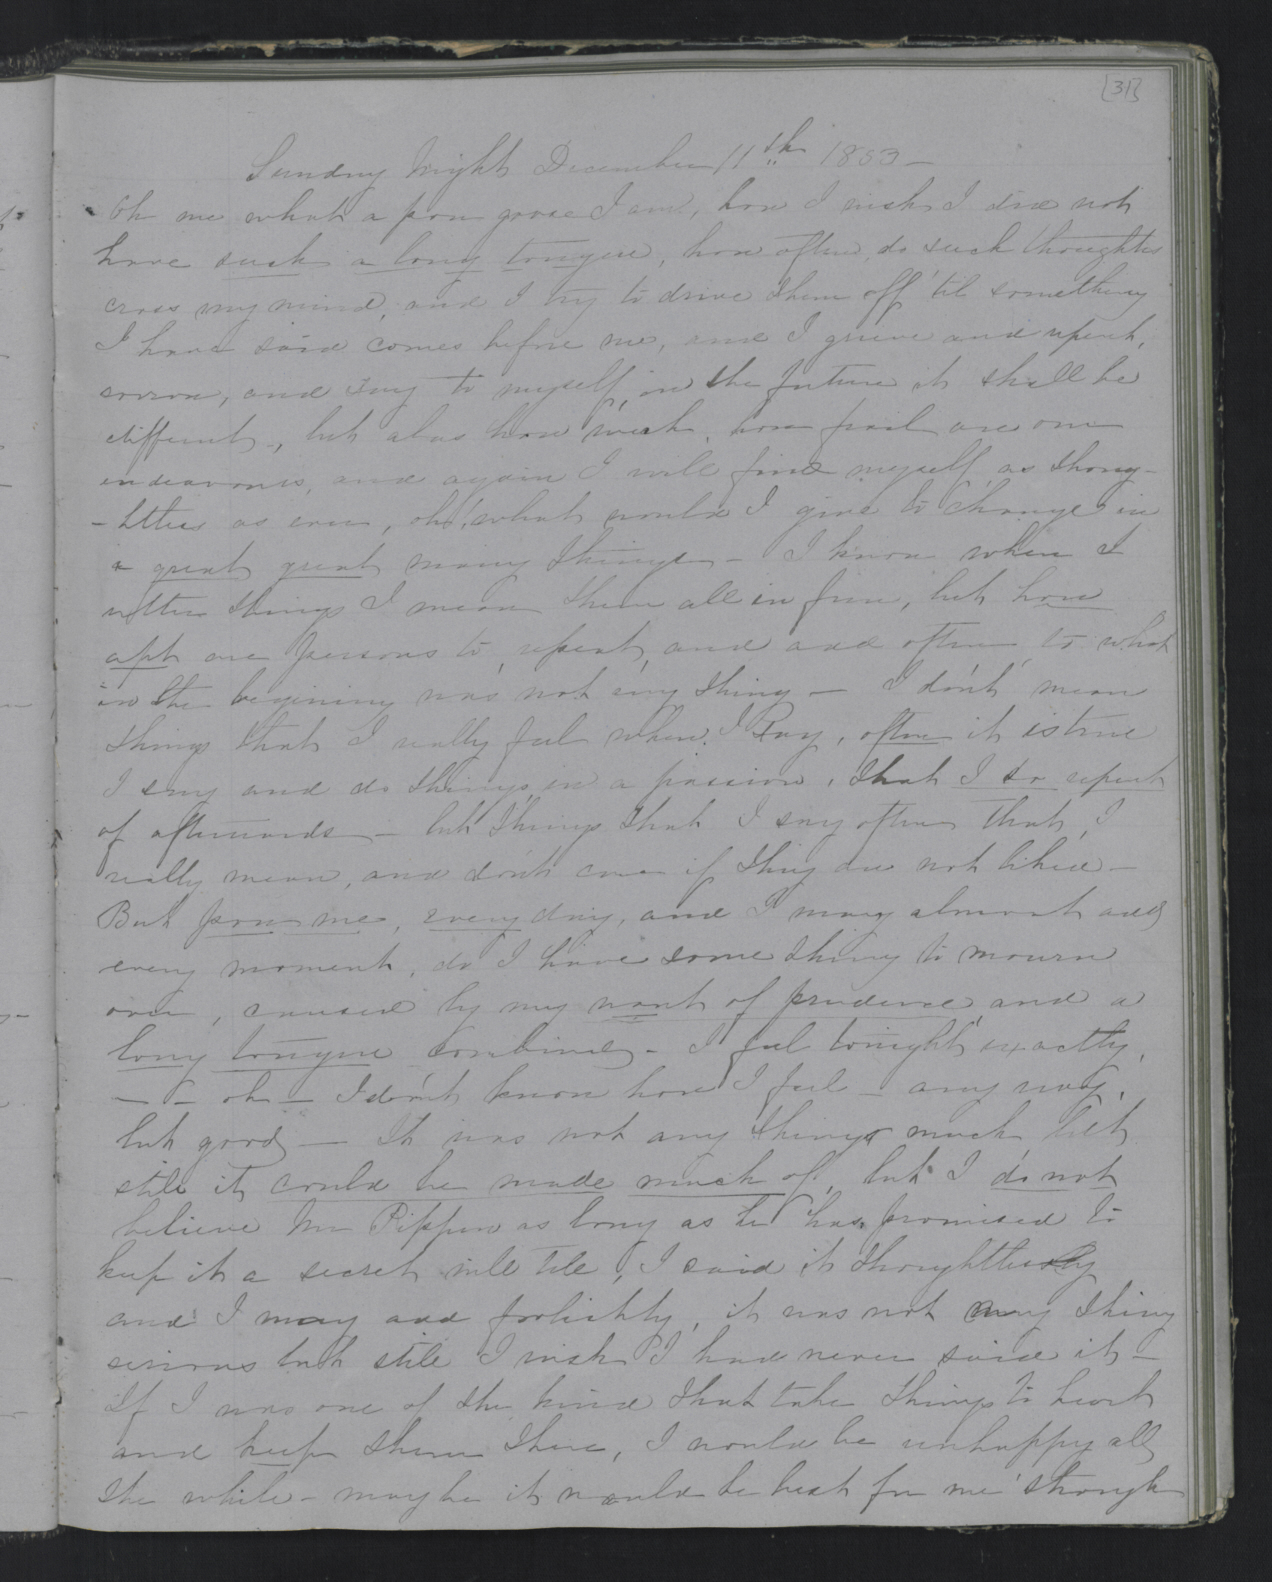 [31]
Sunday Night December 11th 1853 -
Oh me what a poor goose I am, how I wish I did not
have such a long tongue, how often do such thoughts
cross my mind, and I try to drive them off 'til something
I have said comes before me, and I grieve and repent,
sorrow, and say to myself, in the future it shall be
different, but alas how weak, how frail are our
endeavours, and again I will find myself as thoug-
-htless as ever, oh! what would I give to change in
a great great many things - I know when I
utter things I mean them all in fun, but how
apt are persons to repeat, and add often to what
in the begining was not any thing - I don't mean
things that I really feel when I say, often it is true
I say and do things in a passion, that I so repent
of afterwards - but things that I say often that I
really mean, and don't care if they are not liked -
But poor me, every day, and I may almost add
every moment, do I have some thing to mourn
over, caused by my want of prudence, and a
long tongue combined - I feel tonight exactly,
- - oh - I don't know how I feel - any way,
but good - It was not any thing much but
still it could be made much of, but I do not
believe Mr Pippen as long as he has promised to
keep it a secret will tell, I said it thoughtlessly
and I may add foolishly, it was not any thing
serious but still I wish I had never said it -
If I was one of the kind that take things to heart
and keep them there, I would be unhappy all
the while - may be it would be best for me though